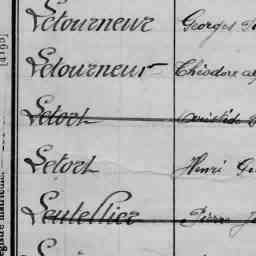 Letourneur Georges
Letourneur Théodore
Letort Aristide
Letort Henri
Leutellier Pierre